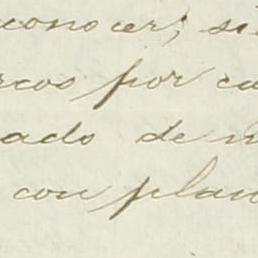 conocer; si
rcos por cu
ado de
con plan